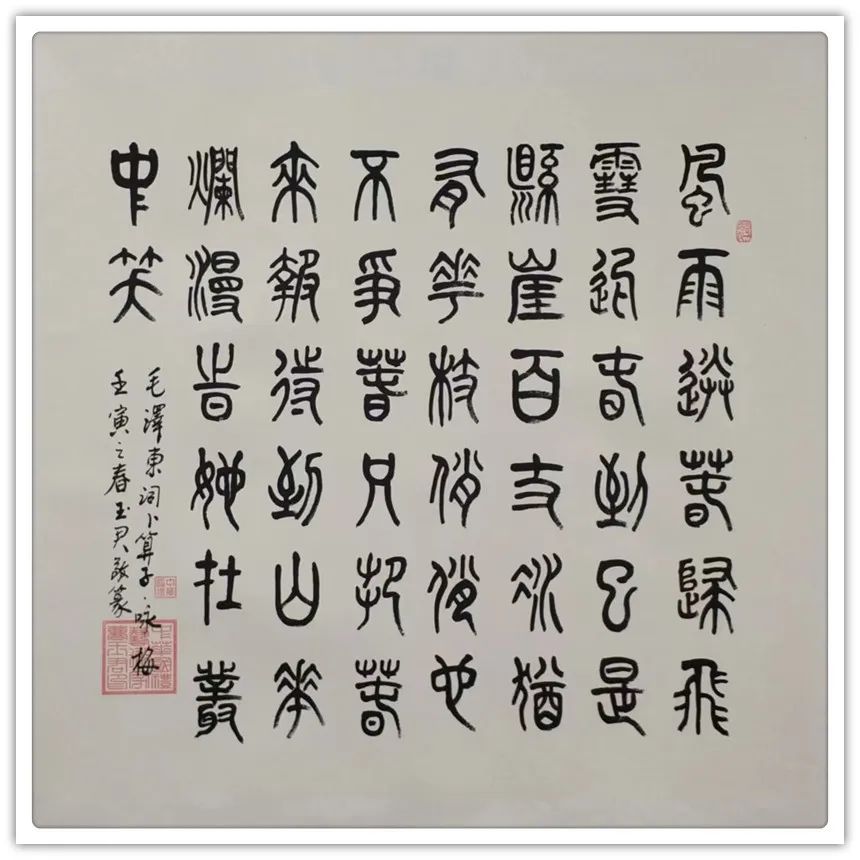 風雨送春歸飛
雪迎春到已是
縣崖百丈冰猶
有花枝俏俏也
不爭春只把春
來報待到山花
爛漫時她在叢
中笑
毛澤東詞卜算子·咏梅
壬寅之春玉君敬篆